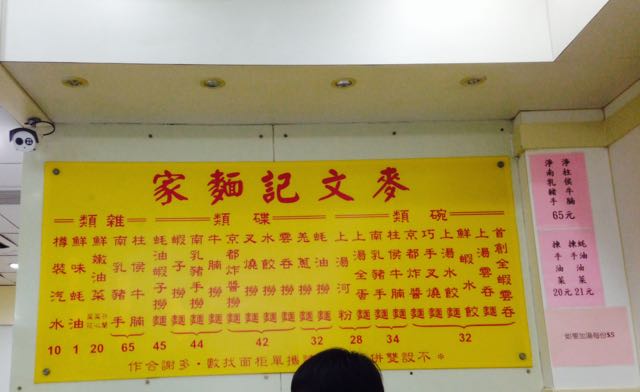 麥文記麵家
碗類
首創全蝦雲吞麵
上湯雲吞
鮮蝦水餃
上湯水餃麵
32
巧手叉燒麵
京都炸醬麵
柱侯牛腩麵
南乳豬手麵
34
上湯全蛋麵
上湯河粉
28
碟類
蠔油撈麵
羌蔥撈麵
32
雲吞撈麵
水餃撈麵
叉燒撈麵
京都炸醬撈麵
42
牛腩撈麵
南乳豬手撈麵
蝦子撈麵
44
蠔油蝦子撈麵
45
雜類
柱侯牛腩
南乳豬手
65
鮮嫩油菜
20
鮮味蠔油
1
樽裝汽水
10
※不設雙併
攜單面柜找數・多謝合作
淨柱侯牛腩
淨南乳豬手
65元
蠔油油菜
21元
揀手油菜
20元
如要加湯每份$5